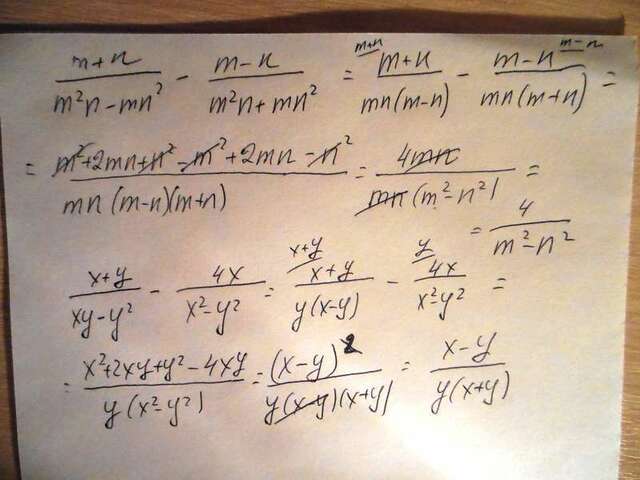 m+n/(m²n-mn²) - m-n/(m²n+mn²) = m+n/(mn(m-n)) ^(m+n) - m-n/(mn(m+n)) ^(m-n) =
= m²+2mn+n²-m²+2mn-n²/(mn(m-n)(m+n)) = 4mn/(mn(m²-n²)) =
= 4/(m²-n²)
x+y/(xy-y²) - 4x/(x²-y²) = x+y/(y(x-y)) ^(x+y) - 4x/(x²-y²) ^(y) =
= x²+2xy+y²-4xy/(y(x²-y²)) = (x-y)²/(y(x-y)(x+y)) = x-y/(y(x+y))